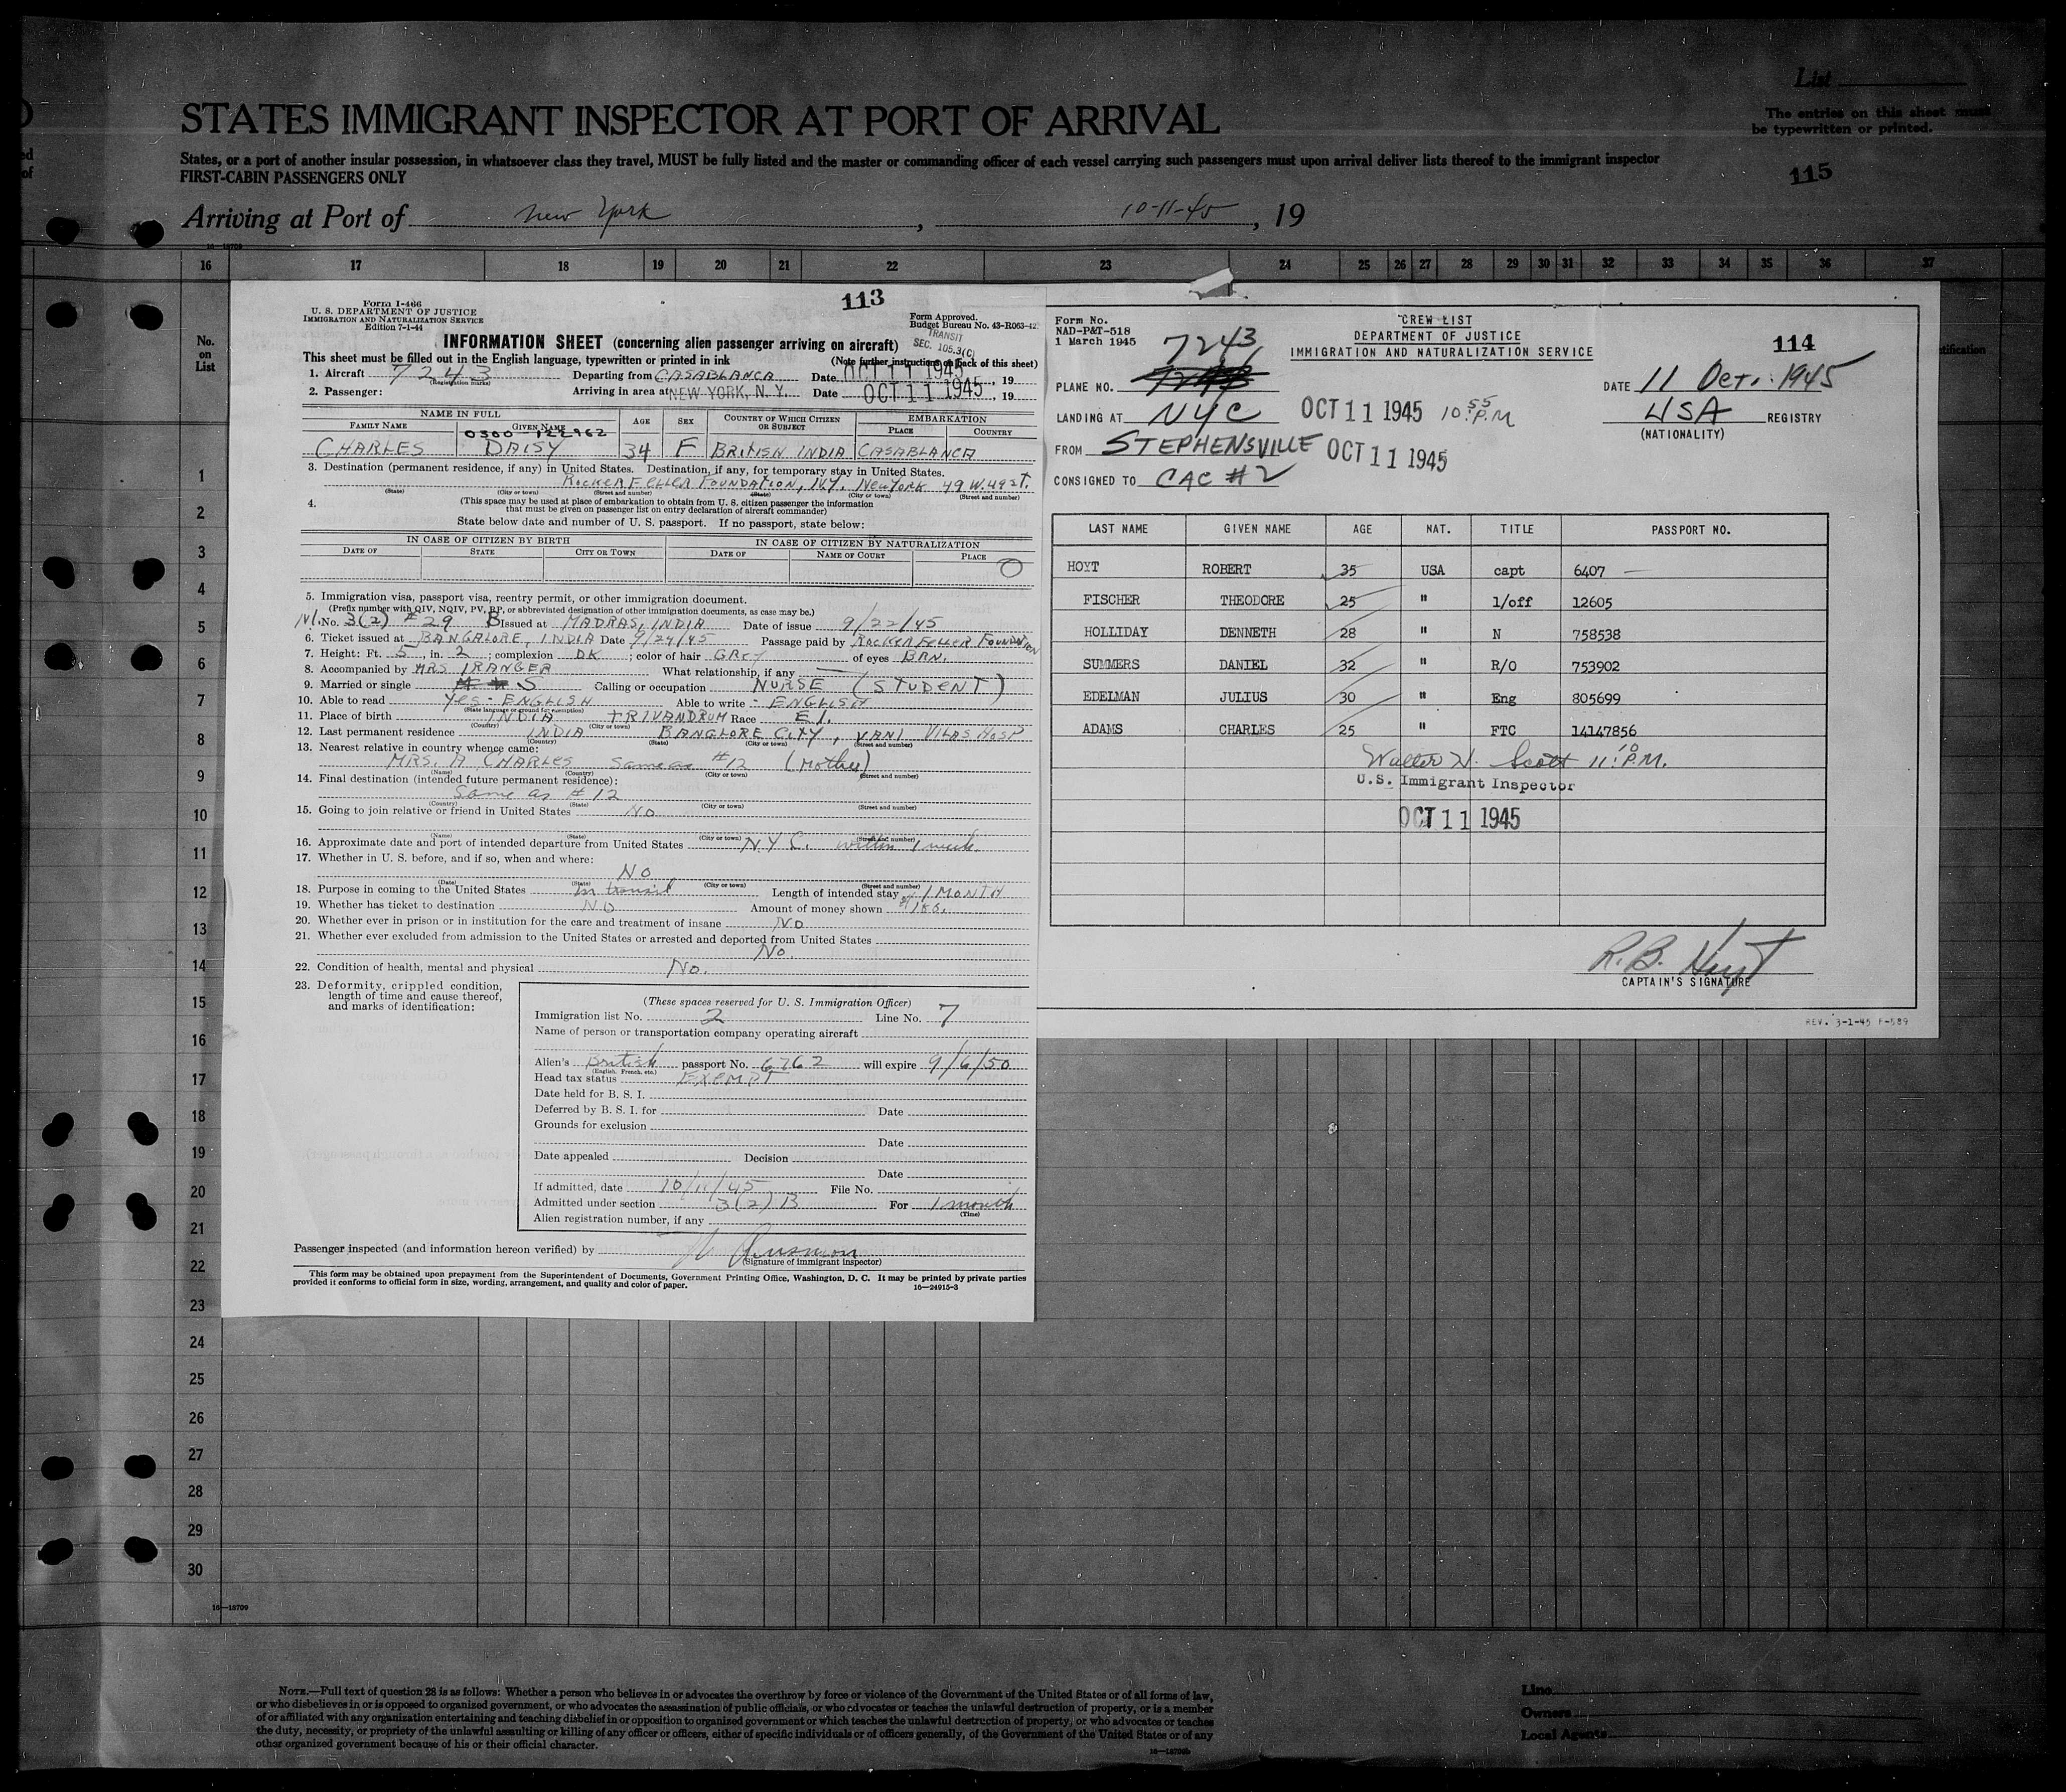 List
STATES IMMIGRANT INSPECTOR AT PORT OF ARRIVAL
The entries on this sheet must
be typewritten or printed.
States, or a port of another insular possession, in whatsoever class they travel, MUST be fully listed and the master or commanding officer of each vessel carrying such passengers must upon arrival deliver lists thereof to the immigrant inspector
FIRST-CABIN PASSENGERS ONLY
115
Arriving at Port of New York, 10-11-45, 19
16—18709
16 17 18 19 20 21 22 23 24 25 26 27 28 29 30 31 32 33 34 35 36 37
No.
on
List
1
2
3
4
5
6
7
8
9
10
11
12
13
14
15
16
17
18
19
20
21
22
23
24
25
26
27
28
29
30
16—18709
113
Form I-466
U. S. DEPARTMENT OF JUSTICE
IMMIGRATION AND NATURALIZATION SERVICE
Edition 7-1-44
Form Approved.
Budget Bureau No. 43-R063-42.
TRANSIT
SEC. 105.3(C)
INFORMATION SHEET (concerning alien passenger arriving on aircraft)
This sheet must be filled out in the English language, typewritten or printed in ink (Note further instructions on back of this sheet)
1. Aircraft 7243 Departing from CASABLANCA Date OCT 11 1945, 19
(Registration marks)
2. Passenger: Arriving in area at NEW YORK, N. Y. Date OCT 11 1945, 19
NAME IN FULL AGE SEX COUNTRY OF WHICH CITIZEN OR SUBJECT EMBARKATION
FAMILY NAME GIVEN NAME PLACE COUNTRY
0300-122962
CHARLES DAISY 34 F BRITISH INDIA CASABLANCA
3. Destination (permanent residence, if any) in United States. Destination, if any, for temporary stay in United States.
ROCKEFELLER FOUNDATION, N.Y. New York 49 W. 49 ST.
(State) (City or town) (Street and number) (State) (City or town) (Street and number)
4. (This space may be used at place of embarkation to obtain from U. S. citizen passenger the information
that must be given on passenger list on entry declaration of aircraft commander)
State below date and number of U. S. passport. If no passport, state below:
IN CASE OF CITIZEN BY BIRTH IN CASE OF CITIZEN BY NATURALIZATION
DATE OF STATE CITY OR TOWN DATE OF NAME OF COURT PLACE
5. Immigration visa, passport visa, reentry permit, or other immigration document.
(Prefix number with QIV, NQIV, PV, RP, or abbreviated designation of other immigration documents, as case may be.)
No. 3(2) #29 B Issued at MADRAS, INDIA Date of issue 9/22/45
6. Ticket issued at BANGALORE, INDIA Date 9/24/45 Passage paid by ROCKEFELLER FOUNDATION
7. Height: Ft. 5, in. 2; complexion DK; color of hair GREY of eyes BRN.
8. Accompanied by MRS IRANGER What relationship, if any —
9. Married or single S Calling or occupation NURSE (STUDENT)
10. Able to read Yes - ENGLISH Able to write - ENGLISH
(State language or ground for exemption)
11. Place of birth INDIA TRIVANDRUM Race E I.
(Country) (City or town)
12. Last permanent residence INDIA BANGLORE CITY, VANI VILAS HOSP
(Country) (State) (City or town) (Street and number)
13. Nearest relative in country whence came:
MRS. A CHARLES Same as #12 (Mother)
(Name) (Country) (City or town) (Street and number)
14. Final destination (intended future permanent residence):
Same as #12
(Country) (State) (City or town) (Street and number)
15. Going to join relative or friend in United States No
(Name) (State) (City or town) (Street and number)
16. Approximate date and port of intended departure from United States N.Y.C. within 1 week.
17. Whether in U. S. before, and if so, when and where:
No
(Date) (State) (City or town) (Street and number)
18. Purpose in coming to the United States In transit Length of intended stay 1 MONTH
19. Whether has ticket to destination NO Amount of money shown
20. Whether ever in prison or in institution for the care and treatment of insane No
21. Whether ever excluded from admission to the United States or arrested and deported from United States
No.
22. Condition of health, mental and physical No.
23. Deformity, crippled condition,
length of time and cause thereof,
and marks of identification:
(These spaces reserved for U. S. Immigration Officer)
Immigration list No. 2 Line No. 7
Name of person or transportation company operating aircraft
Alien's British passport No. 6762 will expire 9/6/50
(English, French, etc.)
Head tax status EXEMPT
Date held for B. S. I.
Deferred by B. S. I. for Date
Grounds for exclusion
Date
Date appealed Decision
Date
If admitted, date 10/11/45 File No.
Admitted under section 3(2) B For 1 month
(Time)
Alien registration number, if any
Passenger inspected (and information hereon verified) by
(Signature of immigrant inspector)
This form may be obtained upon prepayment from the Superintendent of Documents, Government Printing Office, Washington, D. C. It may be printed by private parties
provided it conforms to official form in size, wording, arrangement, and quality and color of paper. 16—24915-3
Form No.
NAD-P&T-518
1 March 1945
CREW LIST
DEPARTMENT OF JUSTICE
IMMIGRATION AND NATURALIZATION SERVICE
114
7243
PLANE NO. DATE 11 Oct. 1945
LANDING AT NYC OCT 11 1945 10:55 P.M USA REGISTRY
(NATIONALITY)
FROM STEPHENSVILLE OCT 11 1945
CONSIGNED TO CAC #2
LAST NAME GIVEN NAME AGE NAT. TITLE PASSPORT NO.
HOYT ROBERT 35 USA capt 6407 —
FISCHER THEODORE 25 " 1/off 12605
HOLLIDAY DENNETH 28 " N 758538
SUMMERS DANIEL 32 " R/O 753902
EDELMAN JULIUS 30 " Eng 805699
ADAMS CHARLES 25 " FTC 14147856
Walter H. Scott 11:10 P.M.
U.S. Immigrant Inspector
OCT 11 1945
R. B. Hoyt
CAPTAIN'S SIGNATURE
REV. 3-1-45 F-589
NOTE.—Full text of question 28 is as follows: Whether a person who believes in or advocates the overthrow by force or violence of the Government of the United States or of all forms of law,
or who disbelieves in or is opposed to organized government, or who advocates the assassination of public officials, or who advocates or teaches the unlawful destruction of property, or is a member
of or affiliated with any organization entertaining and teaching disbelief in or opposition to organized government or which teaches the unlawful destruction of property, or who advocates or teaches
the duty, necessity, or propriety of the unlawful assaulting or killing of any officer or officers, either of specific individuals or of officers generally, of the Government of the United States or of any
other organized government because of his or their official character.
Line
Owners
Local Agents